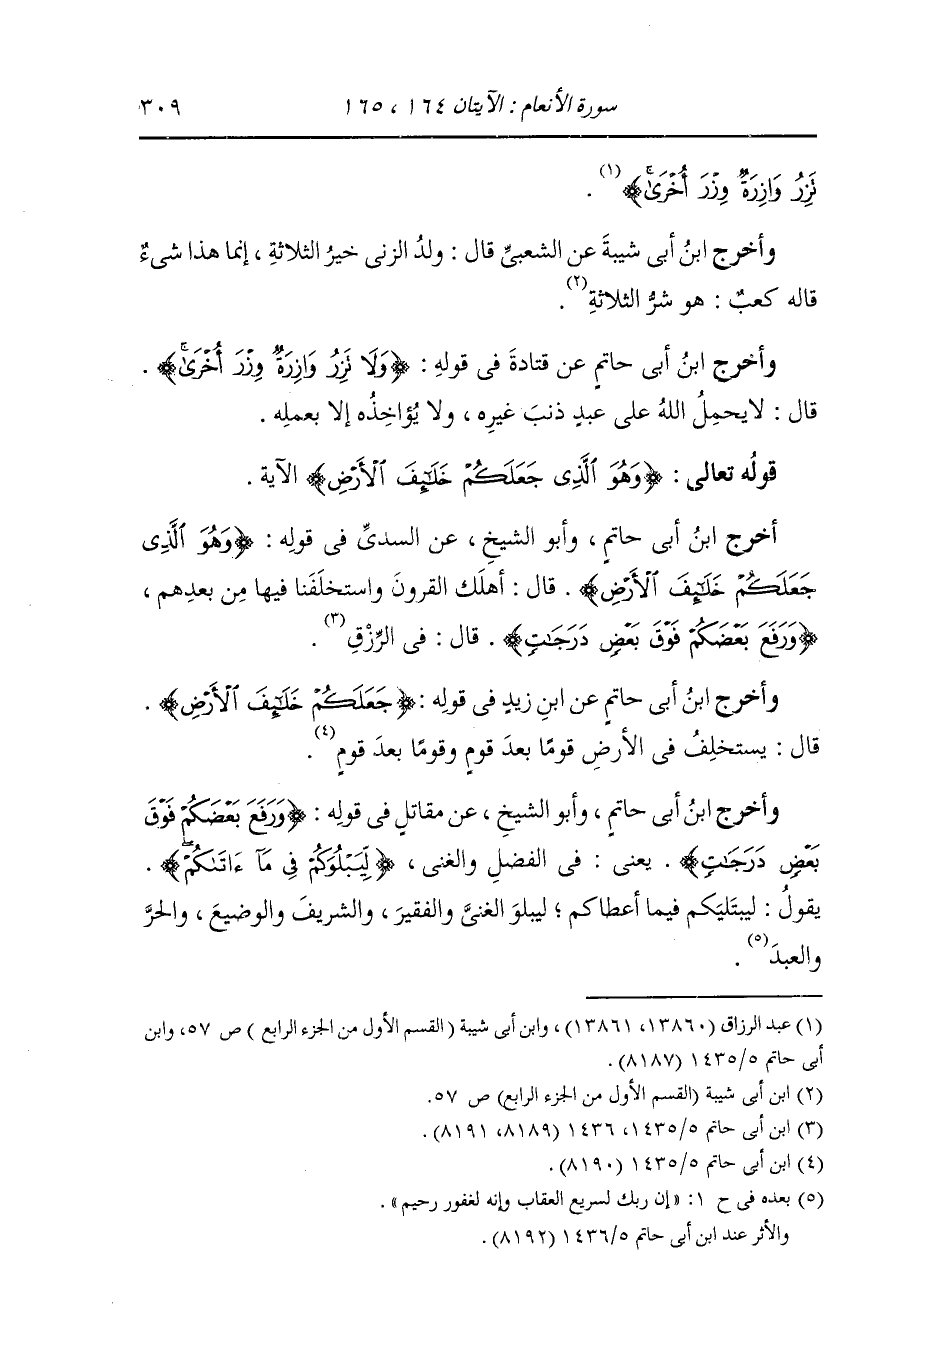 سورة الأنعام : الآيتان ١٦٤ ، ١٦٥ ٣٠٩
نَزِرُ وَازِرَةٌ وِزْرَ أُخْرَىٰ﴾(١) .
وأخرج ابنُ أبى شيبةَ عن الشعبىِّ قال : ولدُ الزنى خيرُ الثلاثةِ ، إنما هذا شىءٌ
قاله كعبٌ : هو شرُّ الثلاثةِ(٢) .
وأخرج ابنُ أبى حاتمٍ عن قتادةَ فى قولِه : ﴿وَلَا نَزِرُ وَازِرَةٌ وِزْرَ أُخْرَىٰ﴾ .
قال : لايحمِلُ اللهُ على عبدٍ ذنبَ غيرِه ، ولا يُؤاخِذُه إلا بعملِه .
قولُه تعالى : ﴿وَهُوَ ٱلَّذِى جَعَلَكُمْ خَلَـٰٓئِفَ ٱلْأَرْضِ﴾ الآية .
أخرج ابنُ أبى حاتمٍ ، وأبو الشيخِ ، عن السدىِّ فى قولِه : ﴿وَهُوَ ٱلَّذِى
جَعَلَكُمْ خَلَـٰٓئِفَ ٱلْأَرْضِ﴾ . قال : أهلَك القرونَ واستخلَفَنا فيها مِن بعدِهم ،
﴿وَرَفَعَ بَعْضَكُمْ فَوْقَ بَعْضٍ دَرَجَـٰتٍ﴾ . قال : فى الرِّزْقِ(٣) .
وأخرج ابنُ أبى حاتمٍ عن ابنِ زيدٍ فى قولِه : ﴿جَعَلَكُمْ خَلَـٰٓئِفَ ٱلْأَرْضِ﴾ .
قال : يستخلِفُ فى الأرضِ قومًا بعدَ قومٍ وقومًا بعدَ قومٍ(٤) .
وأخرج ابنُ أبى حاتمٍ ، وأبو الشيخِ ، عن مقاتلٍ فى قولِه : ﴿وَرَفَعَ بَعْضَكُمْ فَوْقَ
بَعْضٍ دَرَجَـٰتٍ﴾ . يعنى : فى الفضلِ والغنى ، ﴿لِّيَبْلُوَكُمْ فِى مَآ ءَاتَىٰكُمْ﴾ .
يقولُ : ليبتَليَكم فيما أعطاكم ؛ ليبلوَ الغنىَّ والفقيرَ ، والشريفَ والوضيعَ ، والحرَّ
والعبدَ(٥) .
(١) عبد الرزاق (١٣٨٦٠، ١٣٨٦١) ، وابن أبى شيبة ( القسم الأول من الجزء الرابع ) ص ٥٧، وابن
أبى حاتم ١٤٣٥/٥ (٨١٨٧) .
(٢) ابن أبى شيبة (القسم الأول من الجزء الرابع) ص ٥٧.
(٣) ابن أبى حاتم ١٤٣٥/٥، ١٤٣٦ (٨١٨٩، ٨١٩١) .
(٤) ابن أبى حاتم ١٤٣٥/٥ (٨١٩٠) .
(٥) بعده فى ح ١: «إن ربك لسريع العقاب وإنه لغفور رحيم» .
والأثر عند ابن أبى حاتم ١٤٣٦/٥ (٨١٩٢) .